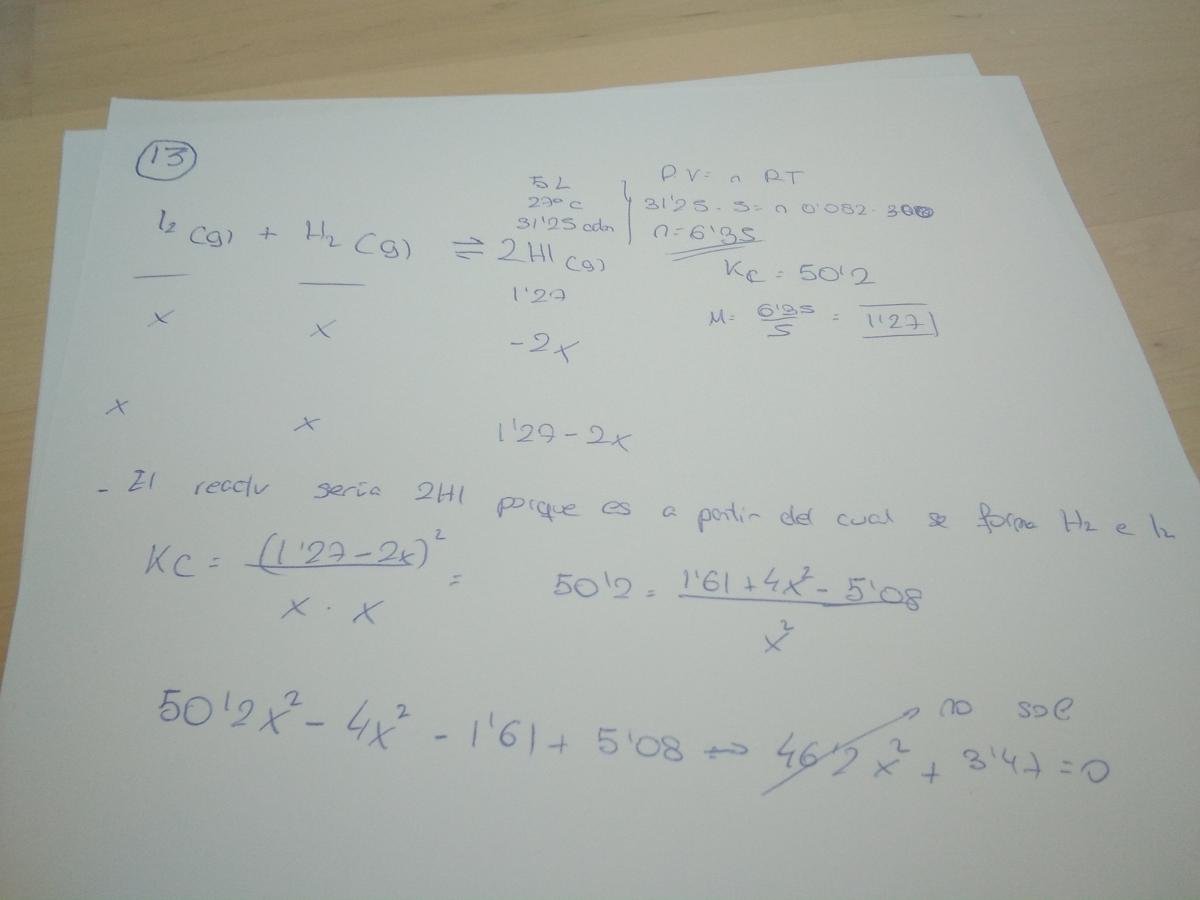 13
5L
27º C
31'25 atm
P.V = n RT
31'25 . 5 = n 0'082 . 300
n = 6'35
I2 (g) + H2 (g) ⇌ 2HI (g)
Kc = 50'2
1'27
x x -2x
M = 6'35 / 5 = 1'27
x x 1'27 - 2x
- El reactiv seria 2HI porque es a partir del cual se forma H2 e I2
KC = (1'27 - 2x)² / x . x =
50'2 = 1'61 + 4x² - 5'08 / x²
50'2x² - 4x² - 1'61 + 5'08 ⇒ 46'2x² + 3'47 = 0
no sol